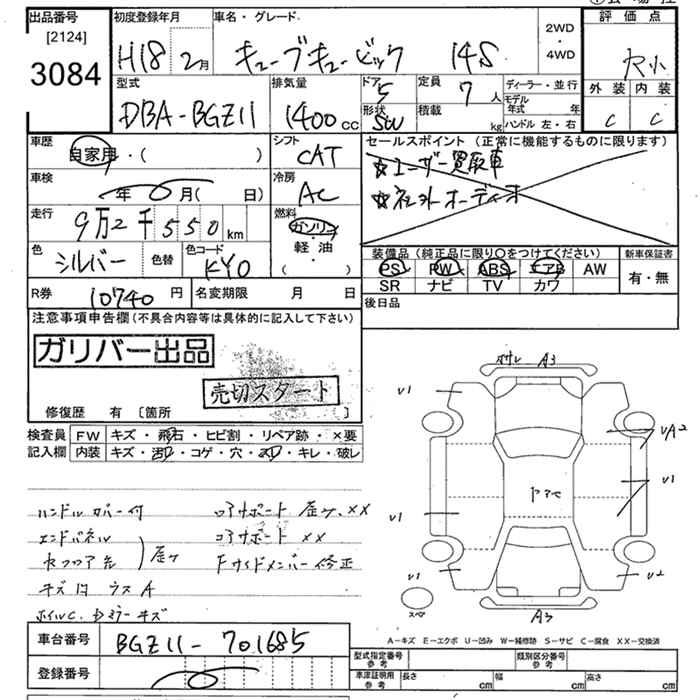 出品番号 初度登録年月 車名・グレード 評価点
[2124] H18 2月 キューブキュービック 14S 2WD・4WD
3084
型式 排気量 ドア 定員 ディーラー・並行 外装 内装
DBA-BGZ11 1400cc 5 7人 モデル年式 年
形状 SW 積載 kg ハンドル 左・右 C C
車歴 自家用・( ) シフト CAT セールスポイント (正常に機能するものに限ります)
☆ユーザー買取車
車検 年 月( 日) 冷房 AC
走行 9万2千550km 燃料 ガソリン・軽油・( )
色 シルバー 色替 色コード KY0
装備品 (純正品に限り○をつけてください) 新車保証書
PS PW ABS エアB AW 有・無
SR ナビ TV カワ
R券 10740円 名変期限 月 日 後日品
注意事項申告欄 (不具合内容等は具体的に記入して下さい)
ガリバー出品
売切スタート
修復歴 有 [箇所 ]
検査員 FW キズ・飛石・ヒビ割・リペア跡・×要
記入欄 内装 キズ・汚レ・コゲ・穴・スレ・キレ・破レ
ハンドルカバー付
エンドパネル
キズ凹 ウスA
コアサポート ××
Fサイドメンバー修正
A3
V1
VA2
V1
V1
V2
V1
スペア
A3
A-キズ E-エクボ U-凹み W-補修跡 S-サビ C-腐食 XX-交換済
車台番号 BGZ11-701685
登録番号
型式指定番号 参考 類別区分番号 参考
車庫証明用 参考 長さ cm 幅 cm 高さ cm